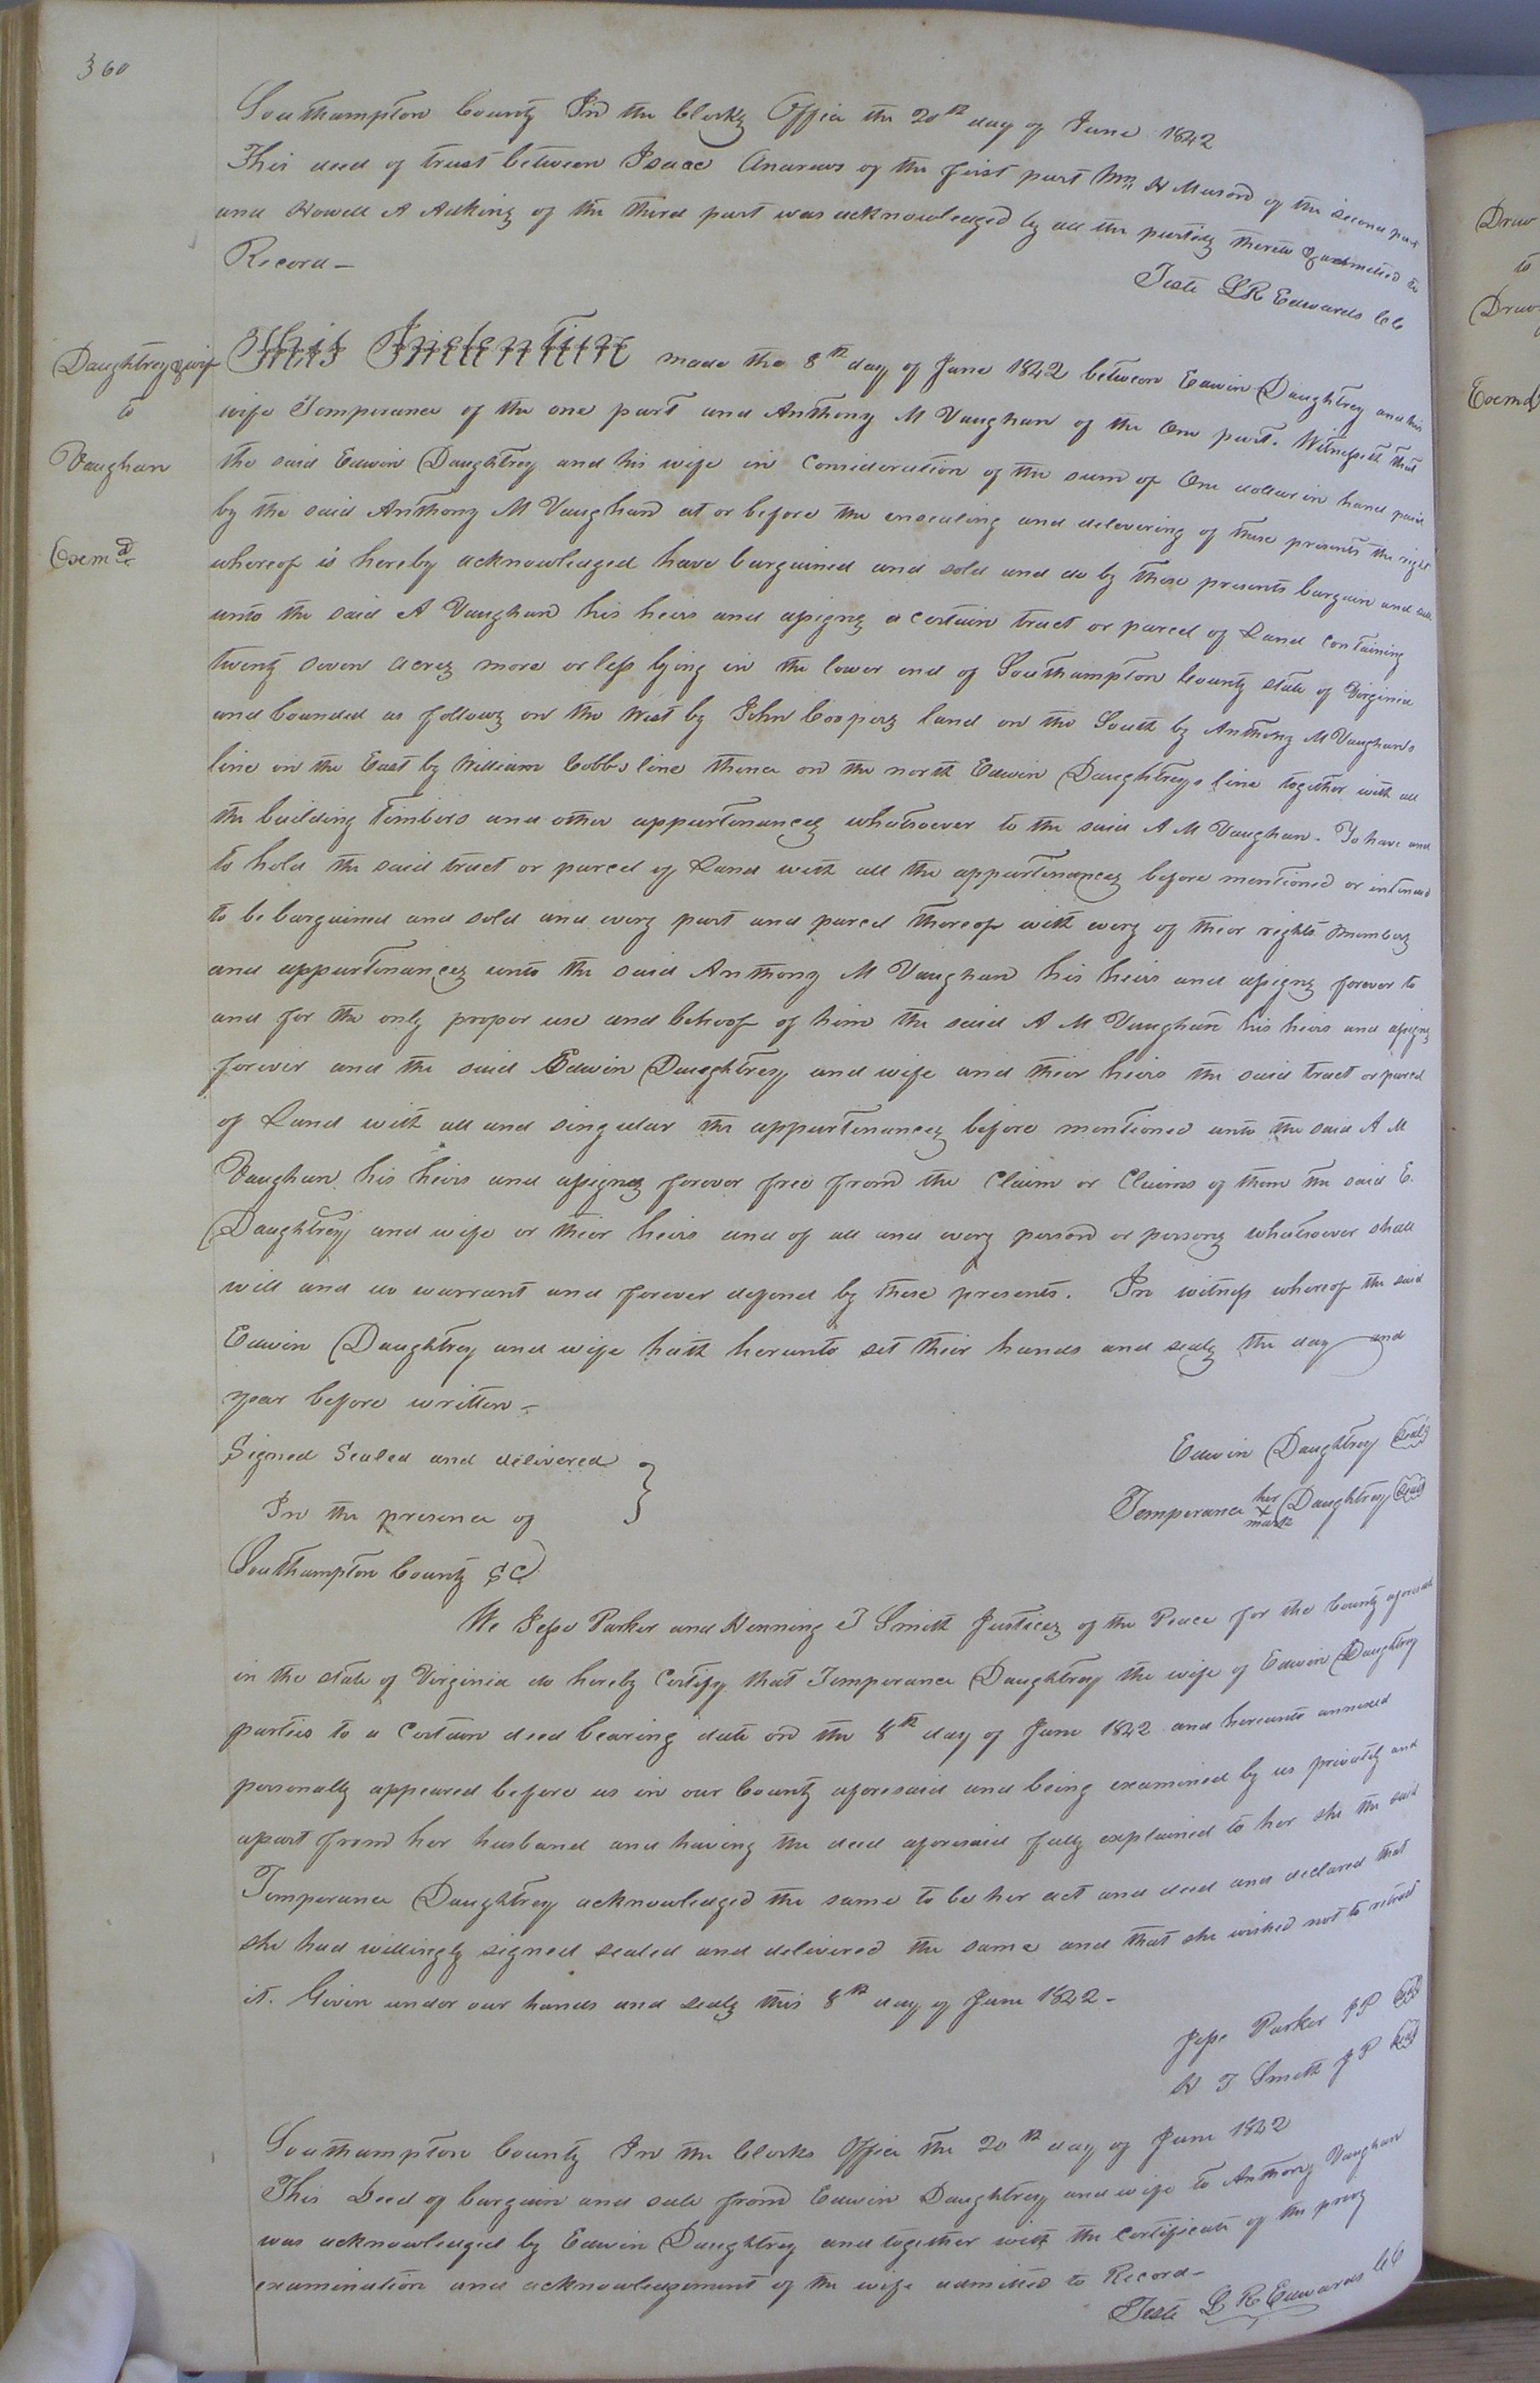 360
Southampton County In the Clerks Office the 20th day of June 1842
This deed of trust between Isaac Andrews of the first part Wm H Mason of the second part
and Howell A Adkins of the third part was acknowledged by all the parties thereto & admitted to
Record –
Teste L R Edwards CC
Daughtrey & wife
to
Vaughan
Exemd
This Indenture made the 8th day of June 1842 between Edwin Daughtrey and his
wife Temperance of the one part and Anthony M Vaughan of the One part. Witnesseth that
the said Edwin Daughtrey and his wife in Consideration of the sum of One dollar in hand paid
by the said Anthony M Vaughan at or before the ensealing and delivering of these presents the right
whereof is hereby acknowledged have bargained and sold and do by these presents bargain and sell
unto the said A Vaughan his heirs and assigns a certain tract or parcel of Land containing
twenty seven acres more or less lying in the lower end of Southampton County state of Virginia
and bounded as follows on the West by John Coopers land on the South by Anthony M Vaughans
line on the East by William Cobbs line thence on the north Edwin Daughtreys line together with all
the building timbers and other appurtenances whatsoever to the said A M Vaughan. To have and
to hold the said tract or parcel of Land with all the appurtenances before mentioned or intened
to be bargained and sold and every part and parcel thereof with every of their rights members
and appurtenances unto the said Anthony M Vaughan his heirs and assigns forever to
and for the only proper use and behoof of him the said A M Vaughan his heirs and assigns
forever and the said Edwin Daughtrey and wife and their heirs the said tract or parcel
of Land with all and singular the appurtenances before mentioned unto the said A M
Vaughan his heirs and assigns forever free from the Claim or Claims of them the said E.
Daughtrey and wife or their heirs and of all and every person or persons whatsoever shall
will and do warrant and forever defend by these presents. In witness whereof the said
Edwin Daughtrey and wife hath herunto set their hands and seals the day and
year before written –
Signed Sealed and delivered }
In the presence of
Edwin Daughtrey Seal
Temperance her X mark Daughtrey Seal
Southampton County SC
We Jesse Parker and Henning T Smith Justices of the Peace for the County aforesaid
in the state of Virginia do hereby Certify that Temperance Daughtrey the wife of Edwin Daughtrey
parties to a Certain deed bearing date on the 8th day of June 1842 and hereunto annexed
personally appeared before us in our County aforesaid and being examined by us privately and
apart from her husband and having the deed aforesaid fully explained to her she the said
Temperance Daughtrey acknowledged the same to be her act and deed and declared that
she had willingly signed sealed and delivered the same and that she wished not to retract
it. Given under our hands and seals this 8th day of June 1842 –
Jesse Parker JP Seal
H T Smith JP Seal
Southampton County In the Clerks Office the 20th day of June 1842
This Deed of bargain and sale from Edwin Daughtrey and wife to Anthony Vaughan
was acknowledged by Edwin Daughtrey and together with the certificate of the privy
examination and acknowledgement of the wife admitted to Record –
Teste L R Edwards CC
Draw
to
Draw
Exemd